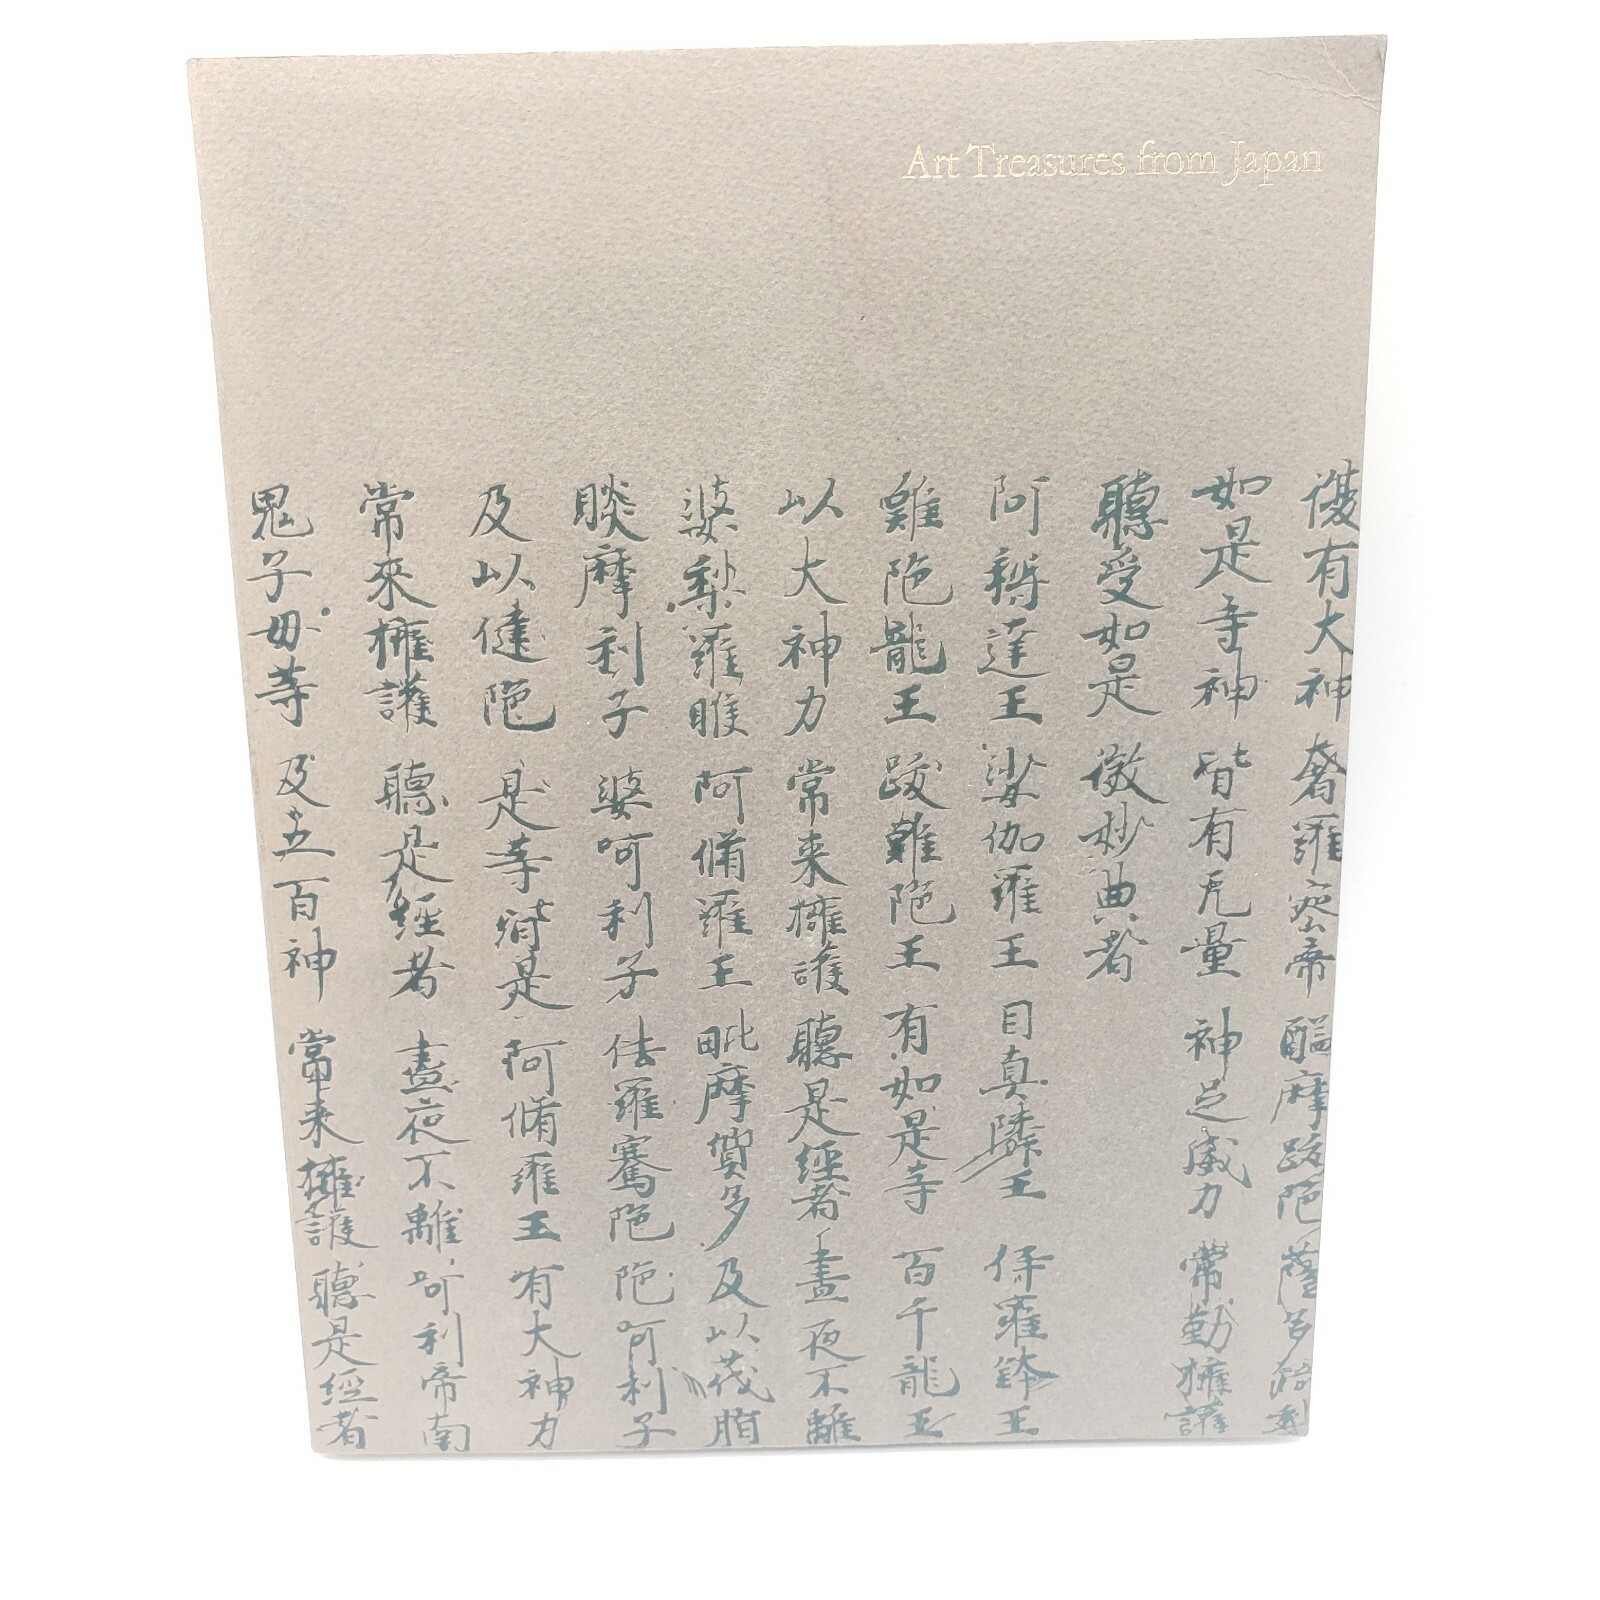 Art Treasures from Japan
復有大神 奢羅蜜帝 醯摩跋陁 薩多
如是䓁神 皆有无量 神足威力 常勤擁護
聽受如是 微妙典者
阿耨達王 娑伽羅王 目真隣王 伊羅鉢王
難陁龍王 跋難陁王 有如是䓁 百千龍王
以大神力 常来擁護 聽是經者 晝夜不離
婆梨羅睺 阿脩羅王 毗摩質多 及以茂脂
睒摩利子 婆呵利子 佉羅騫陁 陁呵利子
及以揵陁 是䓁皆是 阿脩羅王 有大神力
常來擁護 聽是經者 晝夜不離 呵利帝南
鬼子母䓁 及五百神 常来擁護 聽是經者